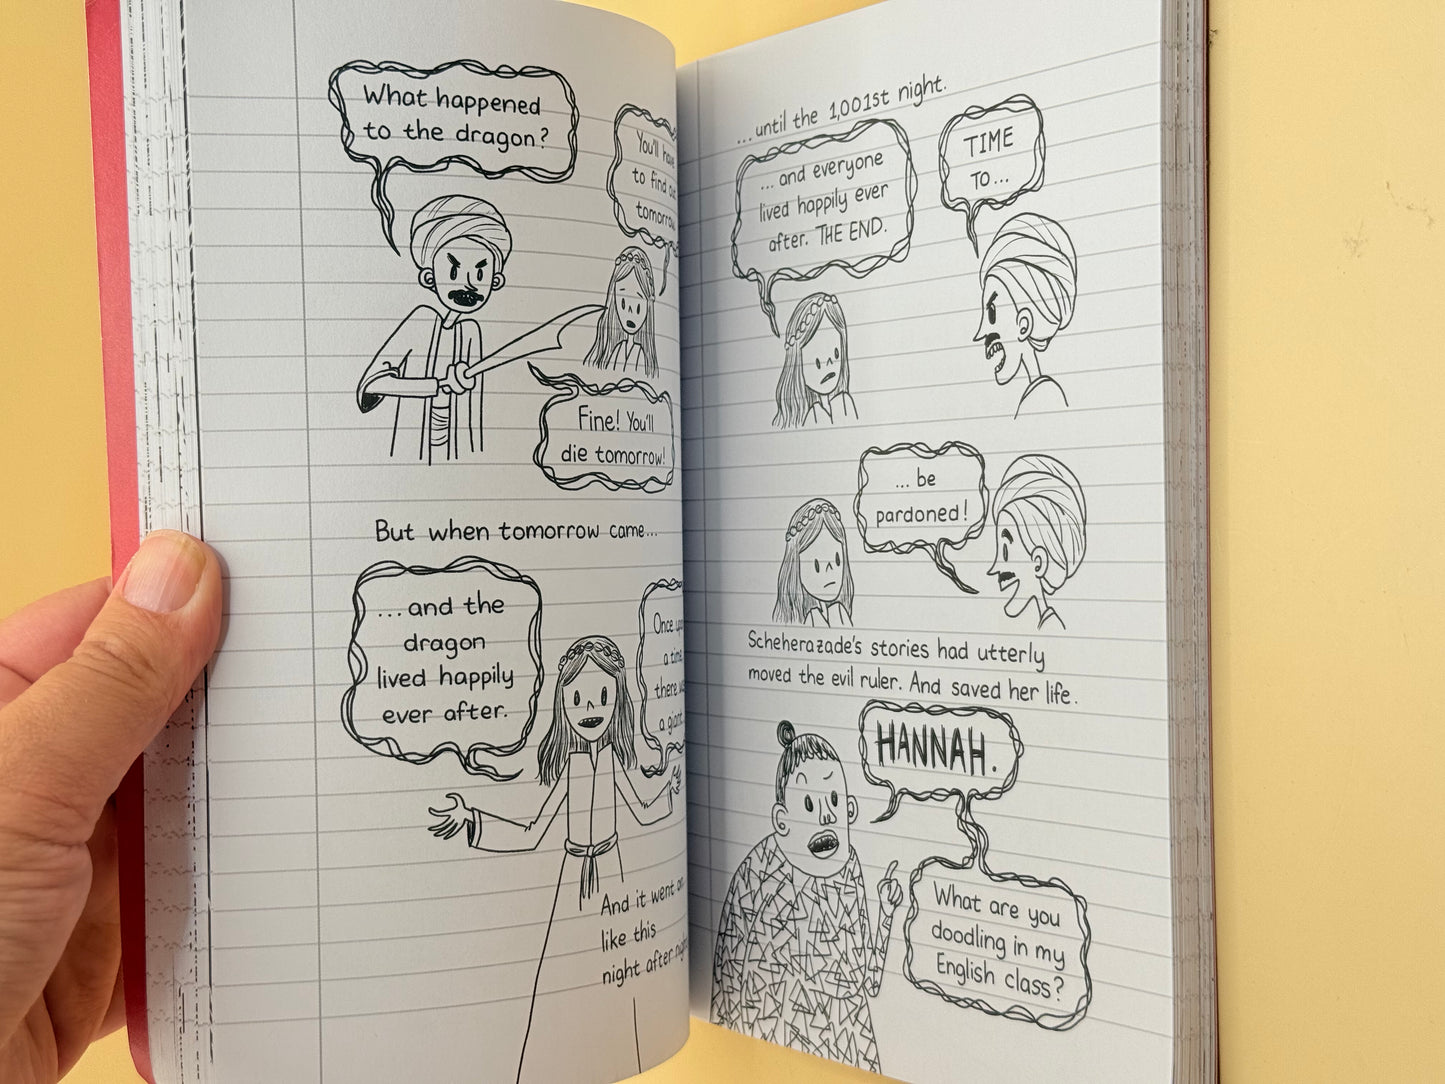 What happened
to the dragon?
You'll have
to find out
tomorrow
Fine! You'll
die tomorrow!
But when tomorrow came...
...and the
dragon
lived happily
ever after.
Once upon
a time
there was
a giant
And it went on
like this
night after night
...until the 1,001st night.
...and everyone
lived happily ever
after. THE END.
TIME
TO...
...be
pardoned!
Scheherazade's stories had utterly
moved the evil ruler. And saved her life.
HANNAH.
What are you
doodling in my
English class?